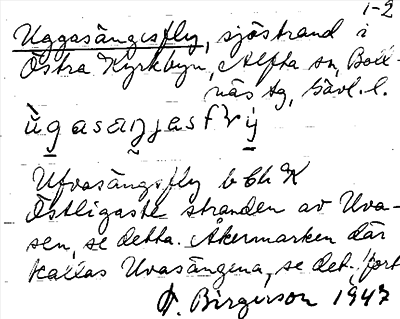 1-2
Uggasängsfly, sjöstrand i
Östra Kyrkbyn, Alfta sn, Boll-
näs tg, Gävl. l.
ùgasaŋjasfrỳ
Ufvasängsfly b Ch K
Östligaste stranden av Uva-
sen, se detta. Åkermarken där
kallas Uvasängena, se det, fort
Birgerson 1947